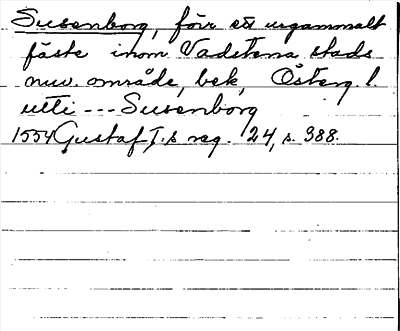 Susenborg, förr ett urgammalt
fäste inom Vadstena stads
nuv. område, bek, Österg. l.
utti --- Susenborg
1554 Gustaf I.s reg. 24, s. 388.